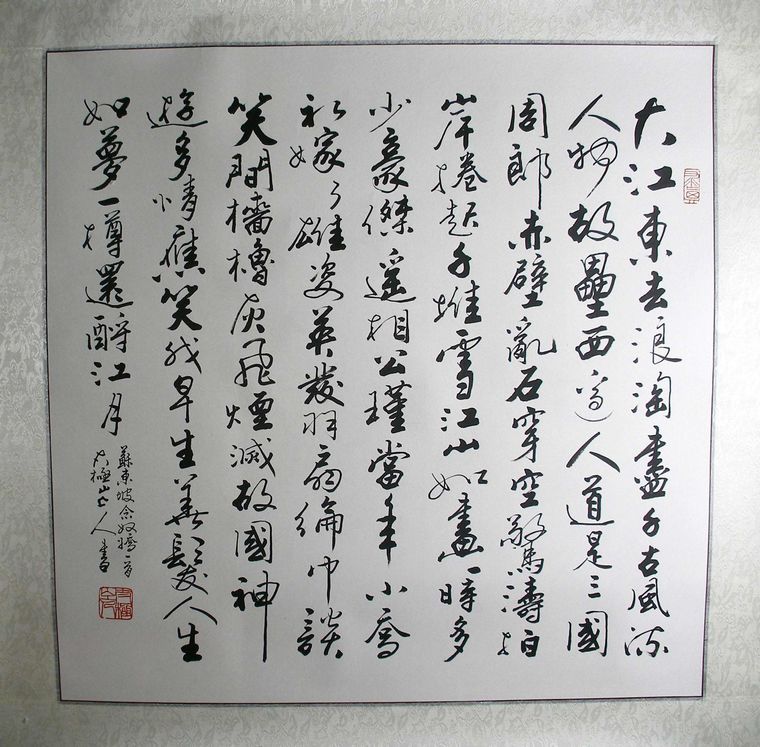 大江東去浪淘盡千古風流
人物故壘西邊人道是三國
周郎赤壁亂石穿空驚濤拍
岸捲起千堆雪江山如畫一時多
少豪傑遙想公瑾當年小喬
初嫁了雄姿英發羽扇綸巾談
笑間檣櫓灰飛煙滅故國神
遊多情應笑我早生華髮人生
如夢一樽還酹江月
蘇東坡念奴嬌一首
太極山人書